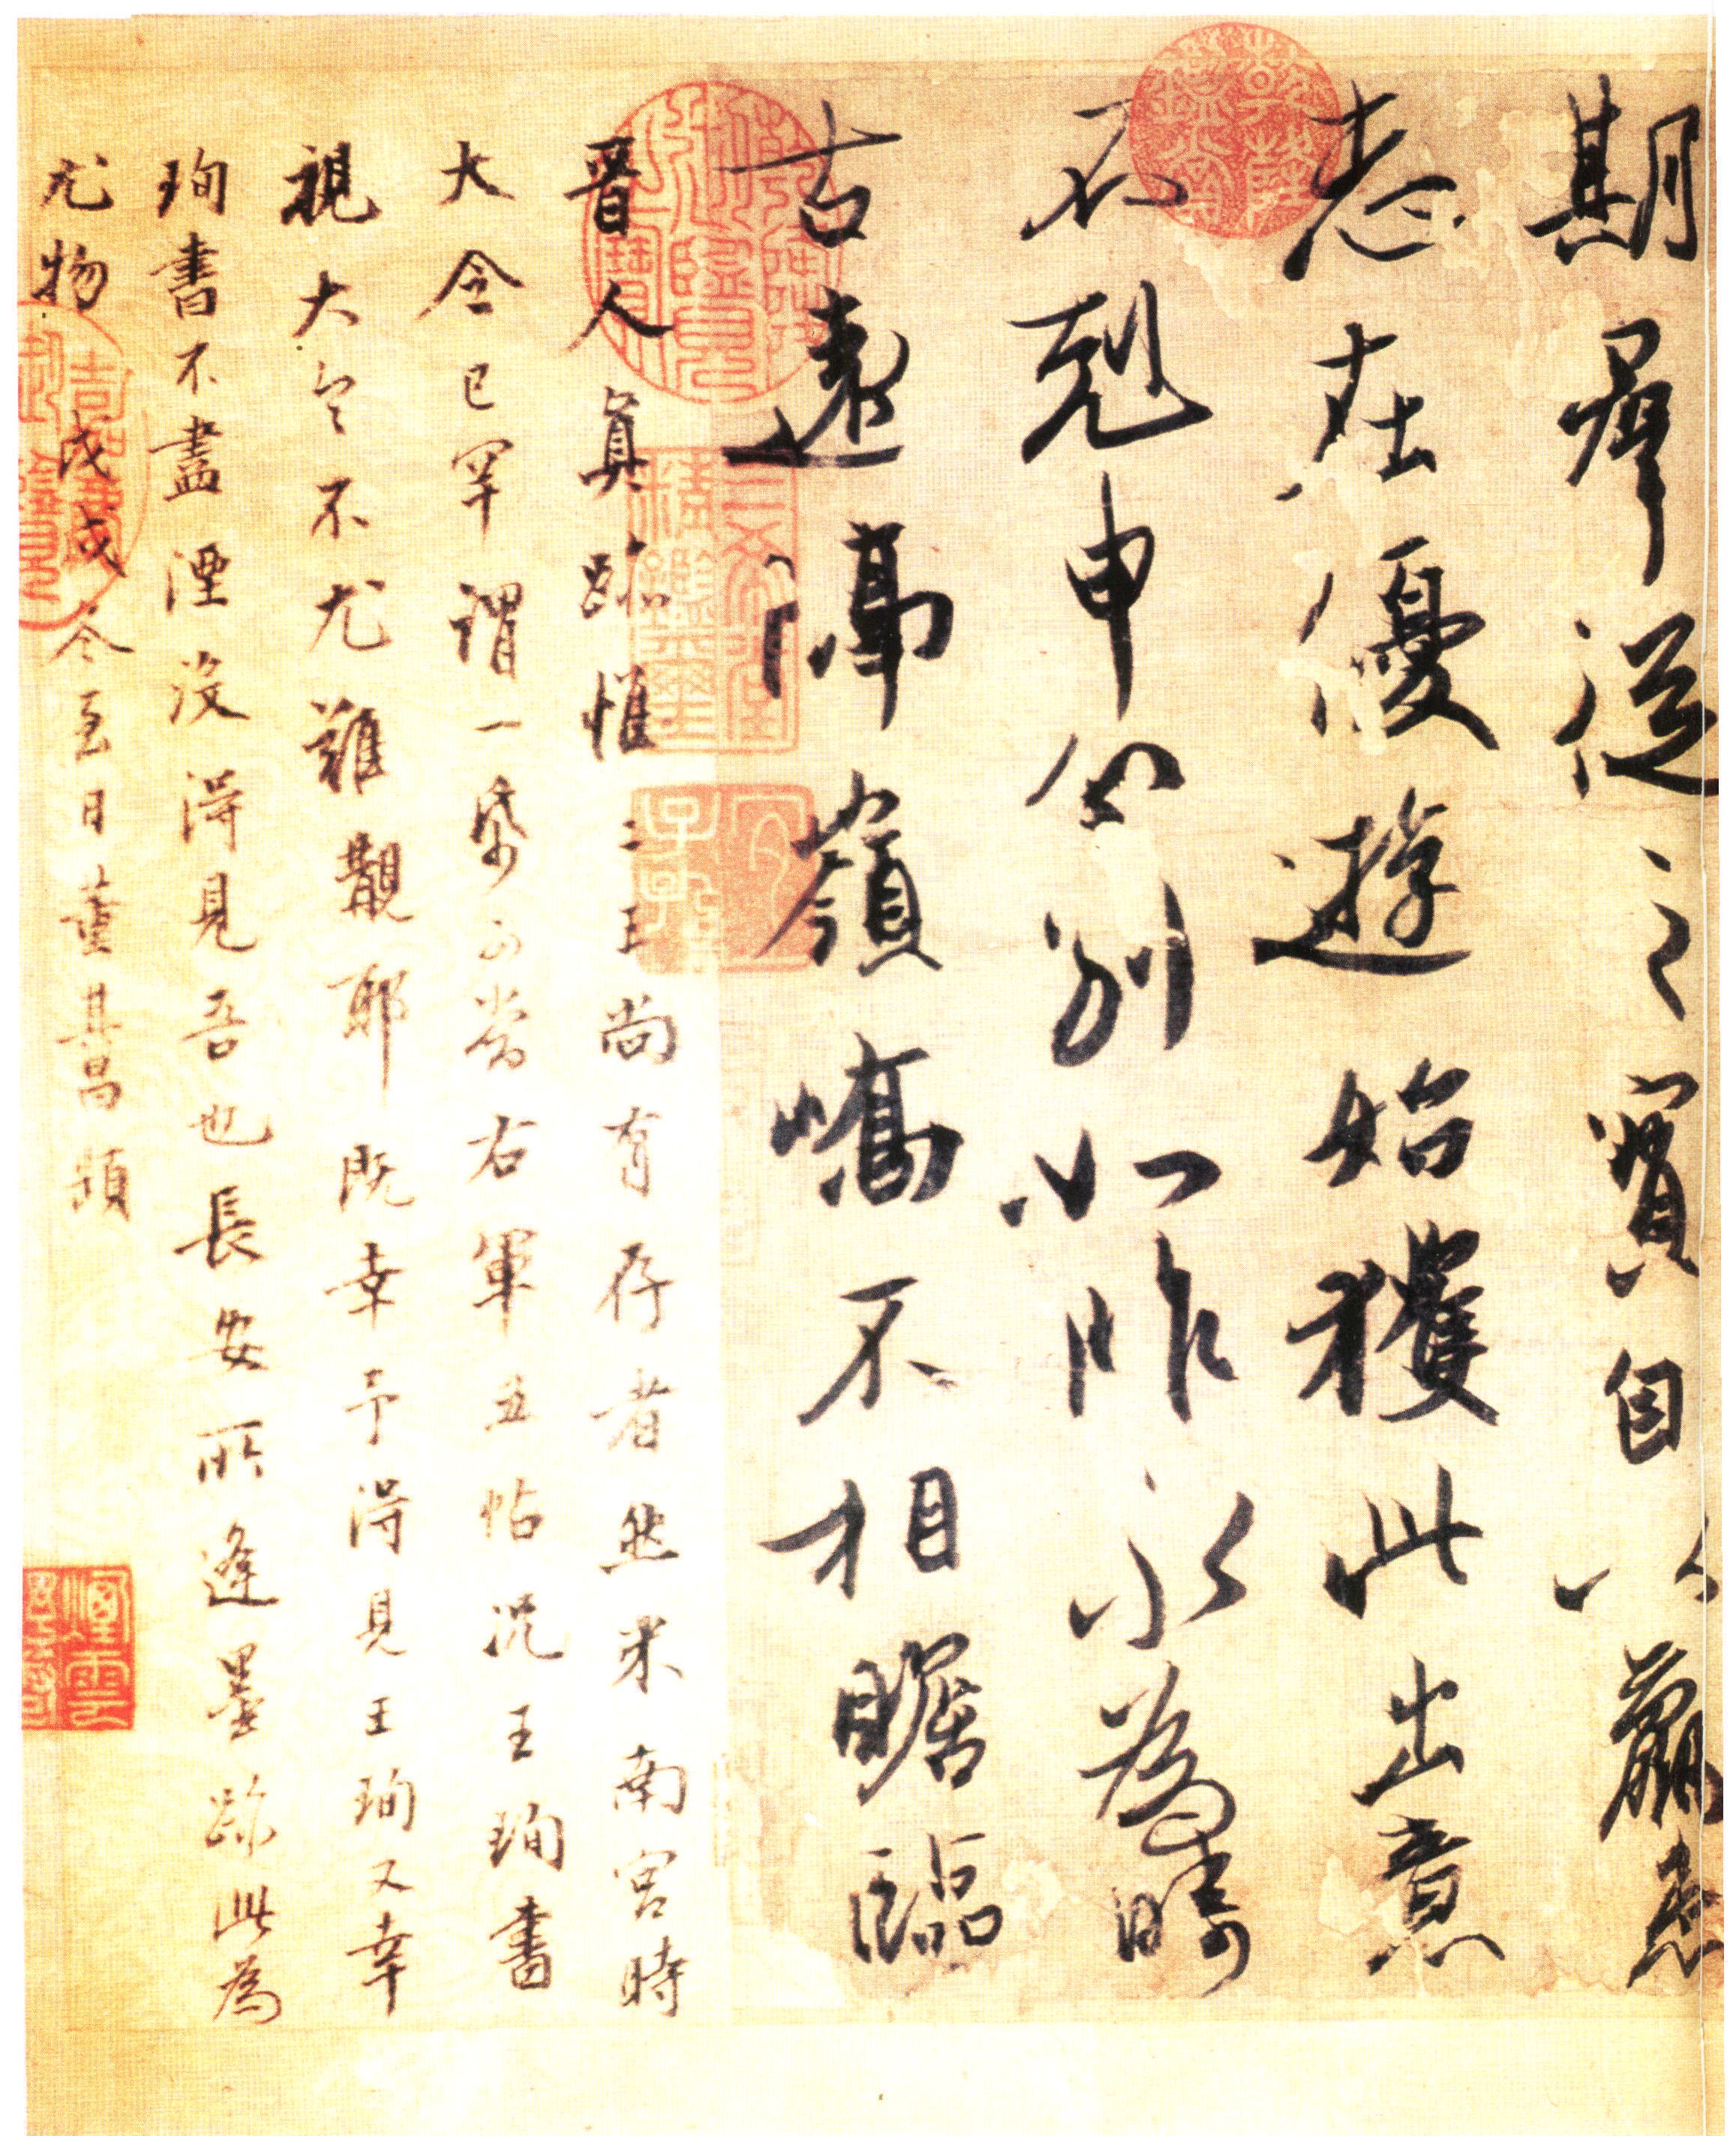 期羣從之寶自以羸患
志在優遊始獲此出意
不剋申分別如昨永為疇
古遠隔嶺嶠不相瞻臨
晉人真跡惟二王尚有存者然米南宮時
大令已罕謂一紙可當右軍五帖況王珣書
視大令不尤難覯耶既幸予得見王珣又幸
珣書不盡湮沒得見吾也長安所逢墨跡此為
尤物戊戌冬至日董其昌題
乾隆御覽之寶
三希堂精鑑璽
宜子孫